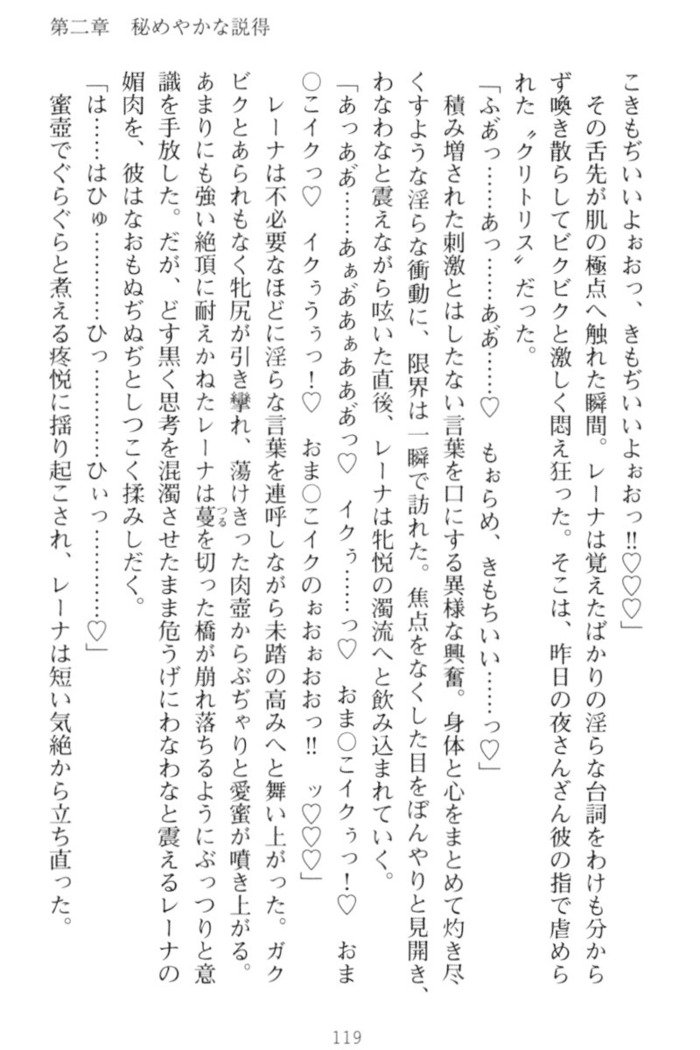 第二章　秘めやかな説得
こきもぢいいよぉおっ、きもぢいいよぉおっ‼♡♡♡」
　その舌先が肌の極点へ触れた瞬間。レーナは覚えたばかりの淫らな台詞をわけも分から
ず喚き散らしてビクビクと激しく悶え狂った。そこは、昨日の夜さんざん彼の指で虐めら
れた〝クリトリス〟だった。
「ふあ゛っ……あっ……あぁ゛……♡　もぉらめ、きもちいい……っ♡」
　積み増された刺激とはしたない言葉を口にする異様な興奮。身体と心をまとめて灼き尽
くすような淫らな衝動に、限界は一瞬で訪れた。焦点をなくした目をぼんやりと見開き、
わなわなと震えながら呟いた直後、レーナは牝悦の濁流へと飲み込まれていく。
「あっあぁ゛……あぁあ゛あぁああぁ゛っ♡　イクぅ……っ♡　おま〇こイクぅっ！♡　おま
〇こイクっ♡　イクぅうぅっ！♡　おま〇こイクのぉおぉおおっ‼　ッ♡♡♡」
　レーナは不必要なほどに淫らな言葉を連呼しながら未踏の高みへと舞い上がった。ガク
ビクとあられもなく牝尻が引き攣れ、蕩けきった肉壺からぶぢゃりと愛蜜が噴き上がる。
あまりにも強い絶頂に耐えかねたレーナは蔓つるを切った橋が崩れ落ちるようにぶっつりと意
識を手放した。だが、どす黒く思考を混濁させたまま危うげにわなわなと震えるレーナの
媚肉を、彼はなおもぬぢぬぢとしつこく揉みしだく。
「は……はひゅ…………ひっ…………ひぃっ…………♡」
　蜜壺でぐらぐらと煮える疼悦に揺り起こされ、レーナは短い気絶から立ち直った。
119